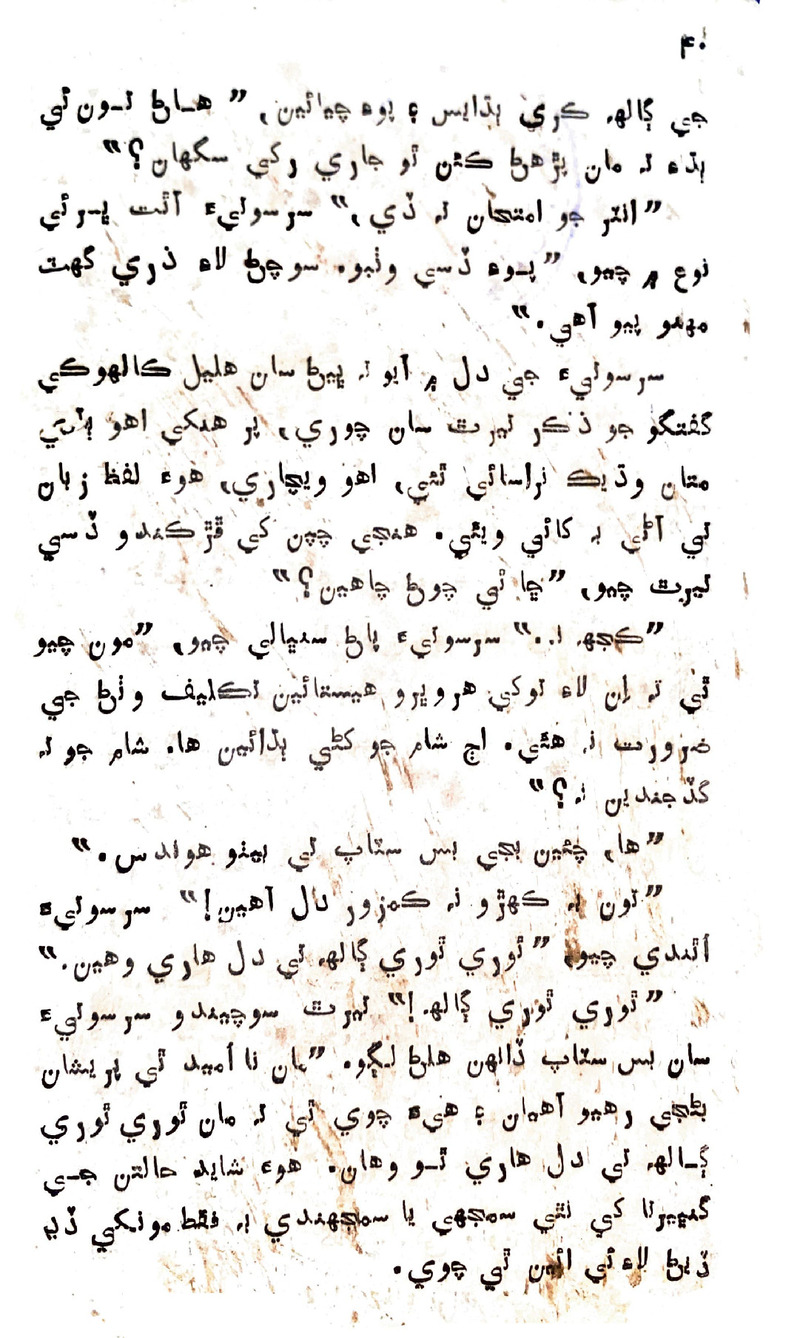 ۴۰
جي ڳالهہ ڪري ٻڌايس ۽ پوءِ چيائين، ”هـاڻ تـون ئي
ٻڌءِ تہ مان پڙهڻ ڪٿن ٿو جاري رکي سگهان؟“
”انٽر جو امتحان تہ ڏي،“ سرسوتيءَ آٿت ڀـرئي
نوع ۾ چيو، ”پـوءِ ڏسي وٺبو. سوچڻ لاءِ ذري گهٽ
مهنو پيو آهي.“
سرسوتيءَ جي دل ۾ آيو تہ ڀيڻ سان هليل ڪالهوڪي
گفتگو جو ذڪر تيرٿ سان چوري، پر هنکي اهو ٻڌي
متان وڌيڪ نراسائي ٿئي، اهو ويچاري، هوءَ لفظ زبان
تي آڻي بہ کائي ويئي. هنجي چپن کي ڦڙڪندو ڏسي
تيرٿ چيو، ”ڇا ٿي چوڻ چاهين؟“
”ڪجهہ نہ.“ سرسوتيءَ پاڻ سنڀالي چيو، ”مون چيو
ٿي تہ اِن لاءِ توکي هرويرو هيستائين تڪليف وٺڻ جي
ضرورت نہ هئي. اڄ شام جو کڻي ٻڌائين ها. شام جو تہ
گڏجندين نہ؟“
”ها، چئين بجي بس سٽاپ تي بيٺو هوندس.“
”تون بہ ڪهڙو نہ ڪمزور دل آهين!“ سرسوتيءَ
اُٿندي چيو، ”ٿوري ٿوري ڳالهہ تي دل هاري وهين.“
”ٿوري ٿوري ڳالهہ!“ تيرٿ سوچيندو سرسوتيءَ
سان بس سٽاپ ڏانهن هلڻ لڳو. ”مان نا اُميد ٿي پريشان
بڻجي رهيو آهيان ۽ هيءَ چوي ٿي تہ مان ٿوري ٿوري
ڳـالهہ تي دل هاري ٿـو وهان. هوءَ شايد حالتن جـي
گنڀيرتا کي نٿي سمجهي يا سمجهندي بہ فقط مونکي ڏڍ
ڏيڻ لاءِ ئي ائين ٿي چوي.